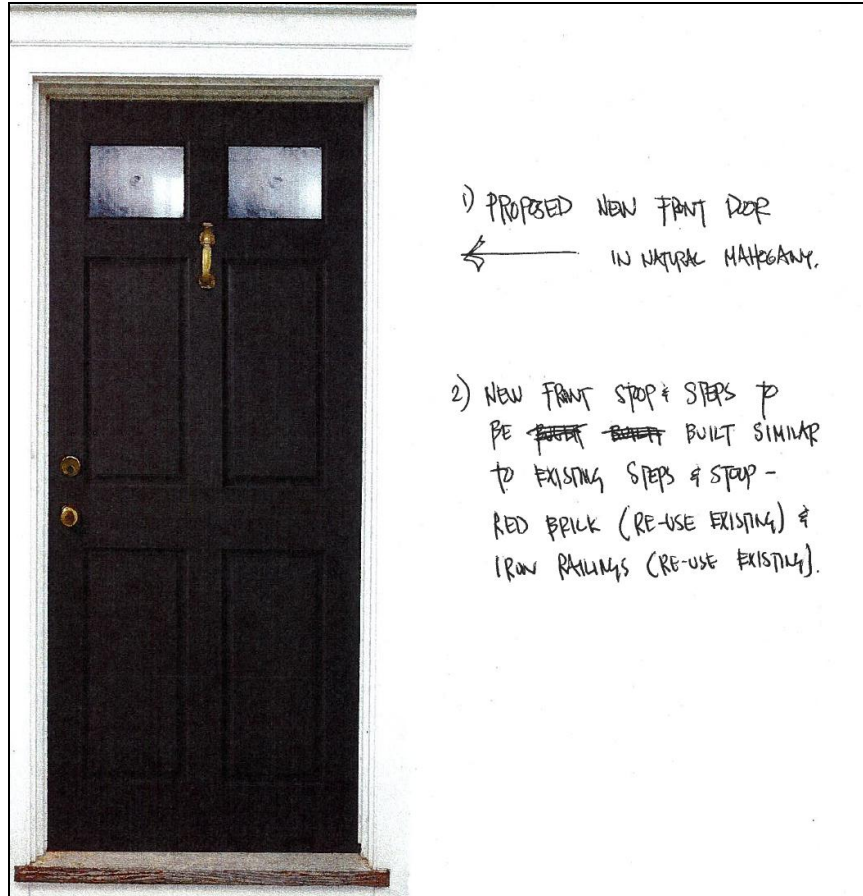 1) PROPOSED NEW FRONT DOOR
IN NATURAL MAHOGANY.
2) NEW FRONT STOOP & STEPS TO
BE BUILT SIMILAR
TO EXISTING STEPS & STOUP -
RED BRICK (RE-USE EXISTING) &
IRON RAILINGS (RE-USE EXISTING).